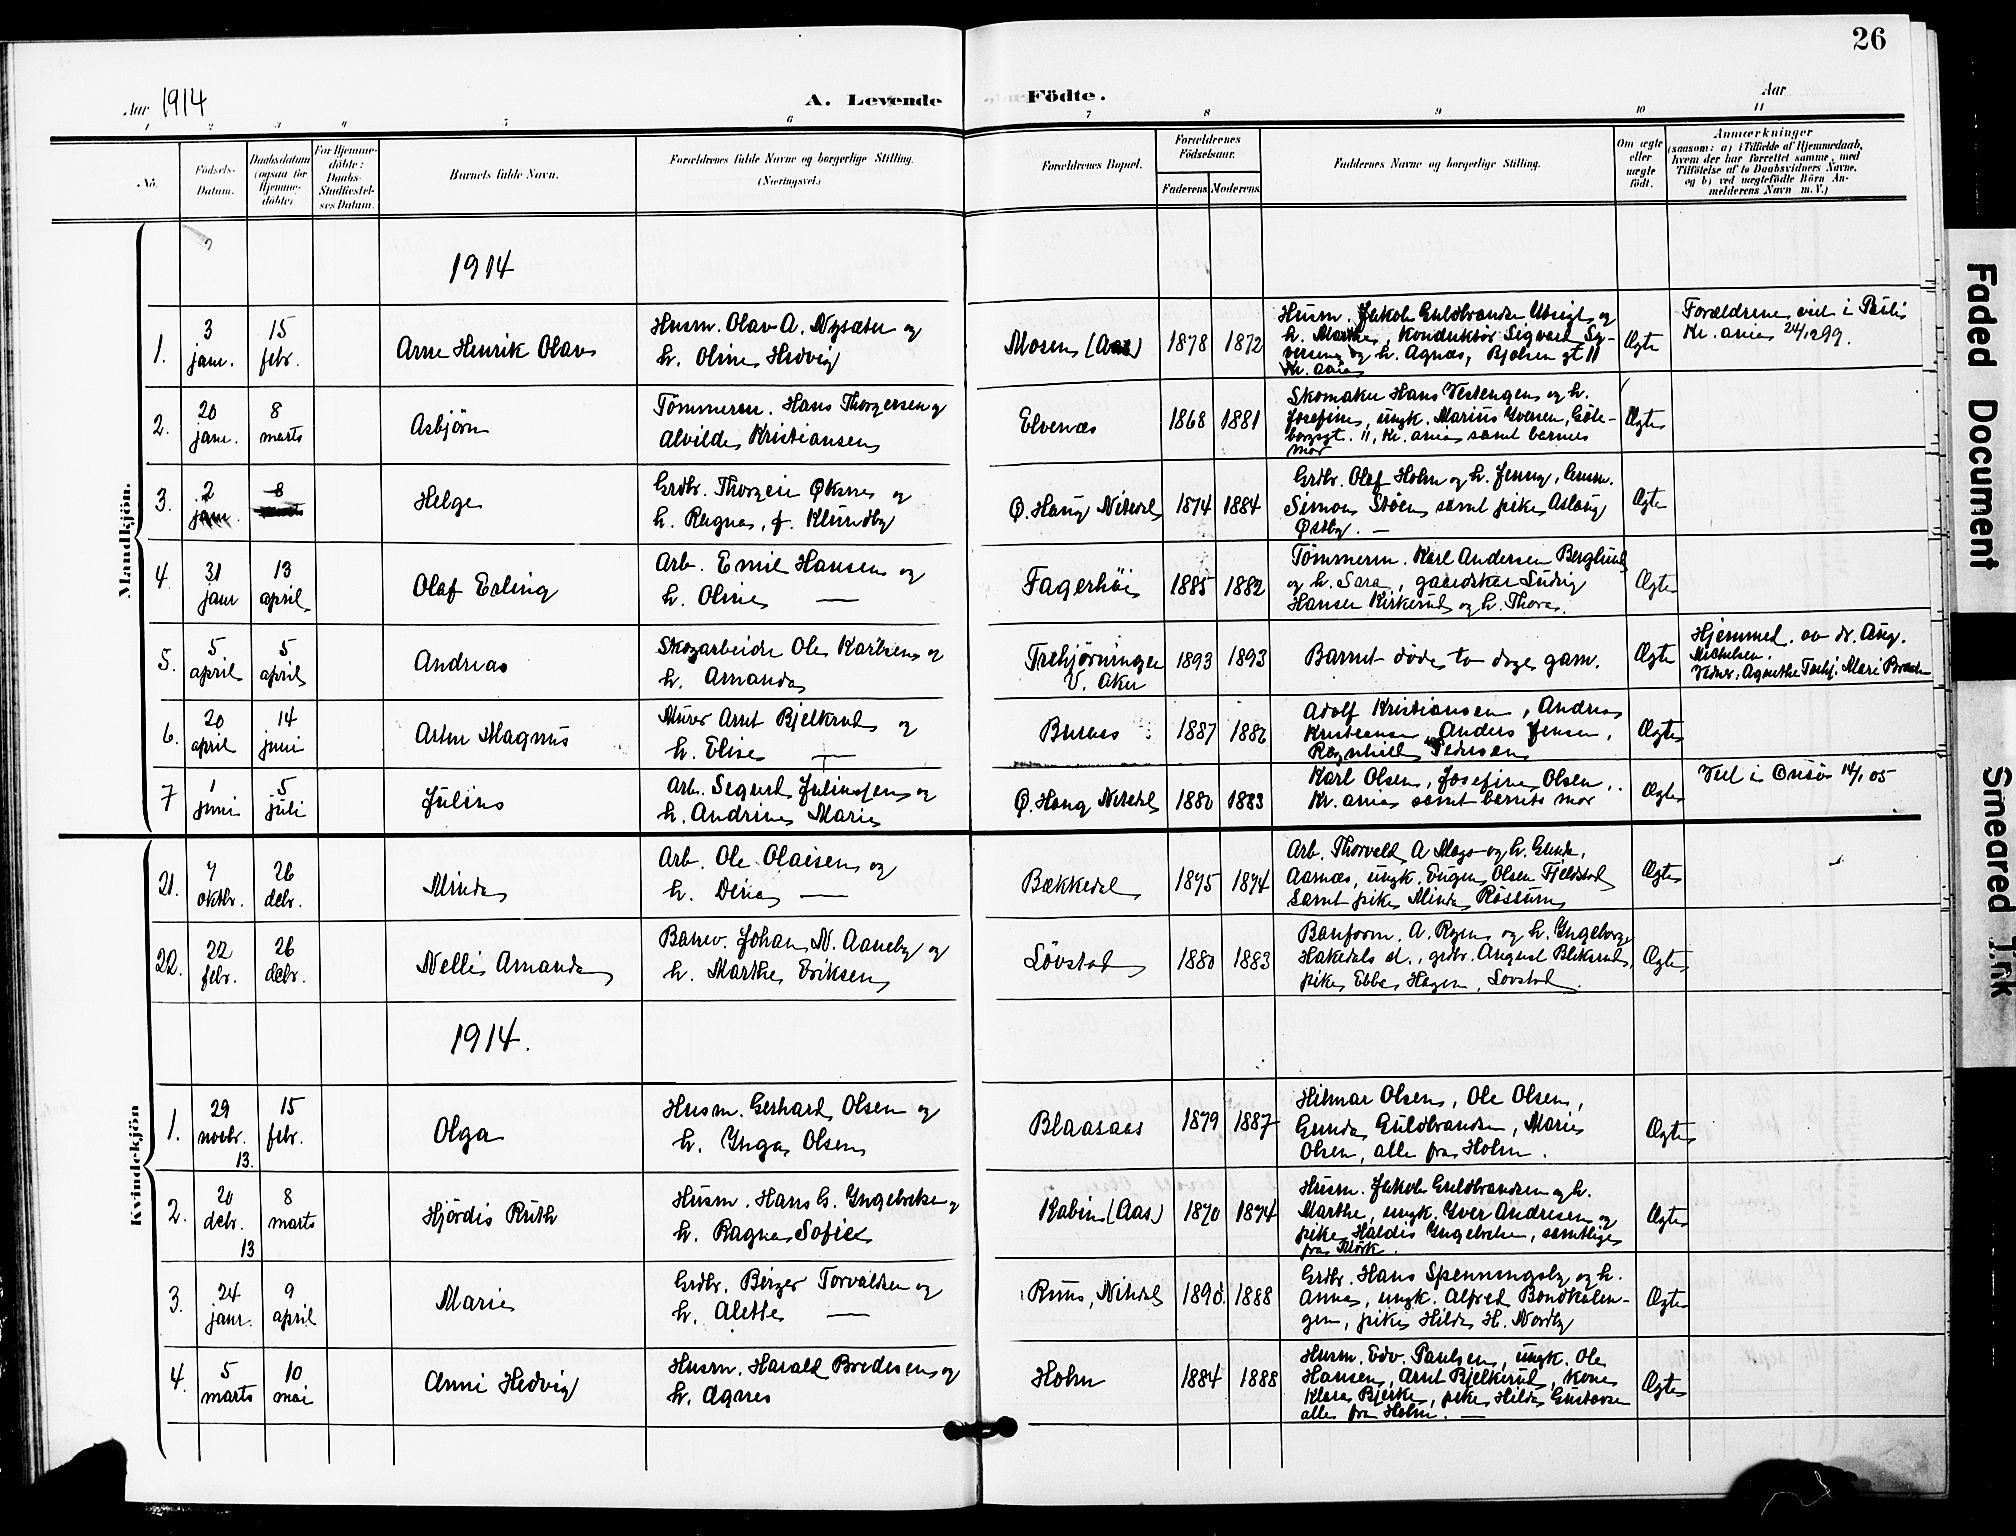 26
Aar 1914
A. Levende Födte.
Aar
1 2 3 4 5 6 7 8 9 10 11
No.
Födsels-
Datum.
Daabsdatum
(ogsaa for
Hjemme-
döbte).
For Hjemme-
döbte:
Daabs-
Stadfæstel-
ses Datum.
Barnets fulde Navn.
Forældrenes fulde Navne og borgerlige Stilling.
(Næringsvei.)
Forældrenes Bopæl.
Forældrenes
Födselsaar.
Faderens. Moderens.
Faddernes Navne og borgerlige Stilling.
Om ægte
eller
uægte
födt.
Anmærkninger
(saasom: a) i Tilfælde af Hjemmedaab,
hvem der har forrettet samme, med
Tilföielse af to Daabsvidners Navne,
og b) ved uægtefödte Börn An-
melderens Navn m. V.)
Mandkjön.
1914
1.
3
janr.
15
febr.
Arne Henrik Olav
Husm. Olav A. Nysæter og
h. Oline Hedvig
Mosen (Aas)
1878
1872
Husm. Jakob Guldbrandsen Utsigt og
h. Marthe, Konduktør Sigvard Sy-
versen og h. Agnes, Bjølsen gt 11
Kr.ania
Ægte
Forældrene viet i Pauli
Kr. ania 24/12 99.
2.
20
janr.
8
marts
Asbjørn
Tømmerm. Hans Thorgersen og
Alvilde Kristiansen
Elvenæs
1868
1881
Skomaker Hans Vestengen og h.
Josefine, ungk. Marius Iversen, Gøte-
borggt. 11, Kr. ania samt barnets
mor
Ægte
3.
2
janr.
8
marts
Helge
Grdbr. Thorgeir Øksne og
h. Ragna, f. Klundby
Ø. Haug Nitedal
1874
1884
Grdbr. Olaf Holm og h. Jenny,
Simon Støen samt pike Aslaug
Østby. —
Ægte
4.
31
janr
13
april
Olaf Erling
Arb. Emil Hansen og
h. Oline —
Fagerhøi
1885
1882
Tømmerm. Karl Andersen Berglund
og h. Sara, gaardskar Ludvig
Hansen Kirkerud og h. Thora.
Ægte
5.
5
april
5
april
Andreas
Skogarbeider Ole Karlsen og
h. Amanda
Trehjørningen
V. Aker
1893
1893
Barnet døde to dage gam.
Ægte
Hjemmed. av dr. Aug.
Michelsen.
Vidner: Agnethe Marie
6.
20
april
14
juni
Artur Magnus
Murer Arnt Bjelkerud og
h. Elise —
Buraas
1887
1886
Adolf Kristiansen, Andreas
Kristiansen, Anders Jensen,
Ragnhild Pedersen
Ægte
7
1
juni
5
juli
Julius
Arb. Sigurd Juliussen og
h. Andrine Marie
Ø. Haug Nitedal
1880
1883
Karl Olsen, Josefine Olsen,
Kr. ania samt barnets mor
Ægte
Viet i 14/1 05
Kvindekjön
21.
7
oktbr.
26
debr.
Minda
Arb. Ole Olaisen og
h. Dina —
Bækkedal
1875
1874
Arb. Thorvald A Mago og h. Gunda,
Aarnæs, ungk. Eugen Olsen Fjeldstad
samt pike Minda Røssum
Ægte
22.
22
febr.
26
debr.
Nelli Amanda
Banev. Johan N. Aaneby og
h. Marthe Eriksen
Løvstad
1880
1883
Banform. A. Rogn og h. Yngeborg
Hakedals st., grdbr. August Bliksrud,
pike Ebba Hagen, Løvstad.
Ægte
1914.
1.
29
novbr.
13.
15
febr.
Olga
Husm. Gerhard Olsen og
h. Ynga Olsen
Blaasaas
1879
1887
Hilmar Olsen, Ole Olsen,
Gunda Guldbrandsen, Marie
Olsen, alle fra Holm.
Ægte
2.
20
debr.
13
8
marts
Hjördis Ruth
Husm. Hans G. Yngebretsen og
h. Ragna Sofie
Rabin (Aas)
1870
1874
Husm. Jakob Guldbrandsen og h.
Marthe, ungk. Yver Andresen og
pike Haldis Yngebretsen, samtlige
fra Mørk.
Ægte
3.
24
janr.
9
april
Marie
Grdbr. Birger Torvaldsen og
h. Alette —
Ruus, Nitedal
1890.
1888
Grdbr. Hans Spenningsby og h.
Anna, ungk. Alfred Bondkalen-
gen, pike Hilda H. Nordby
Ægte
4.
5
marts
10
mai
Anni Hedvig
Husm. Harald Bredesen og
h. Agnes
Holm
1884
1888
Husm. Edv. Paulsen, ungk. Ole
Hansen, Arnt Bjelkerud, kone
Klara Bjerke, pike Hilda Gustavsen
alle fra Holm. —
Ægte
Faded Document
Smeared Ink